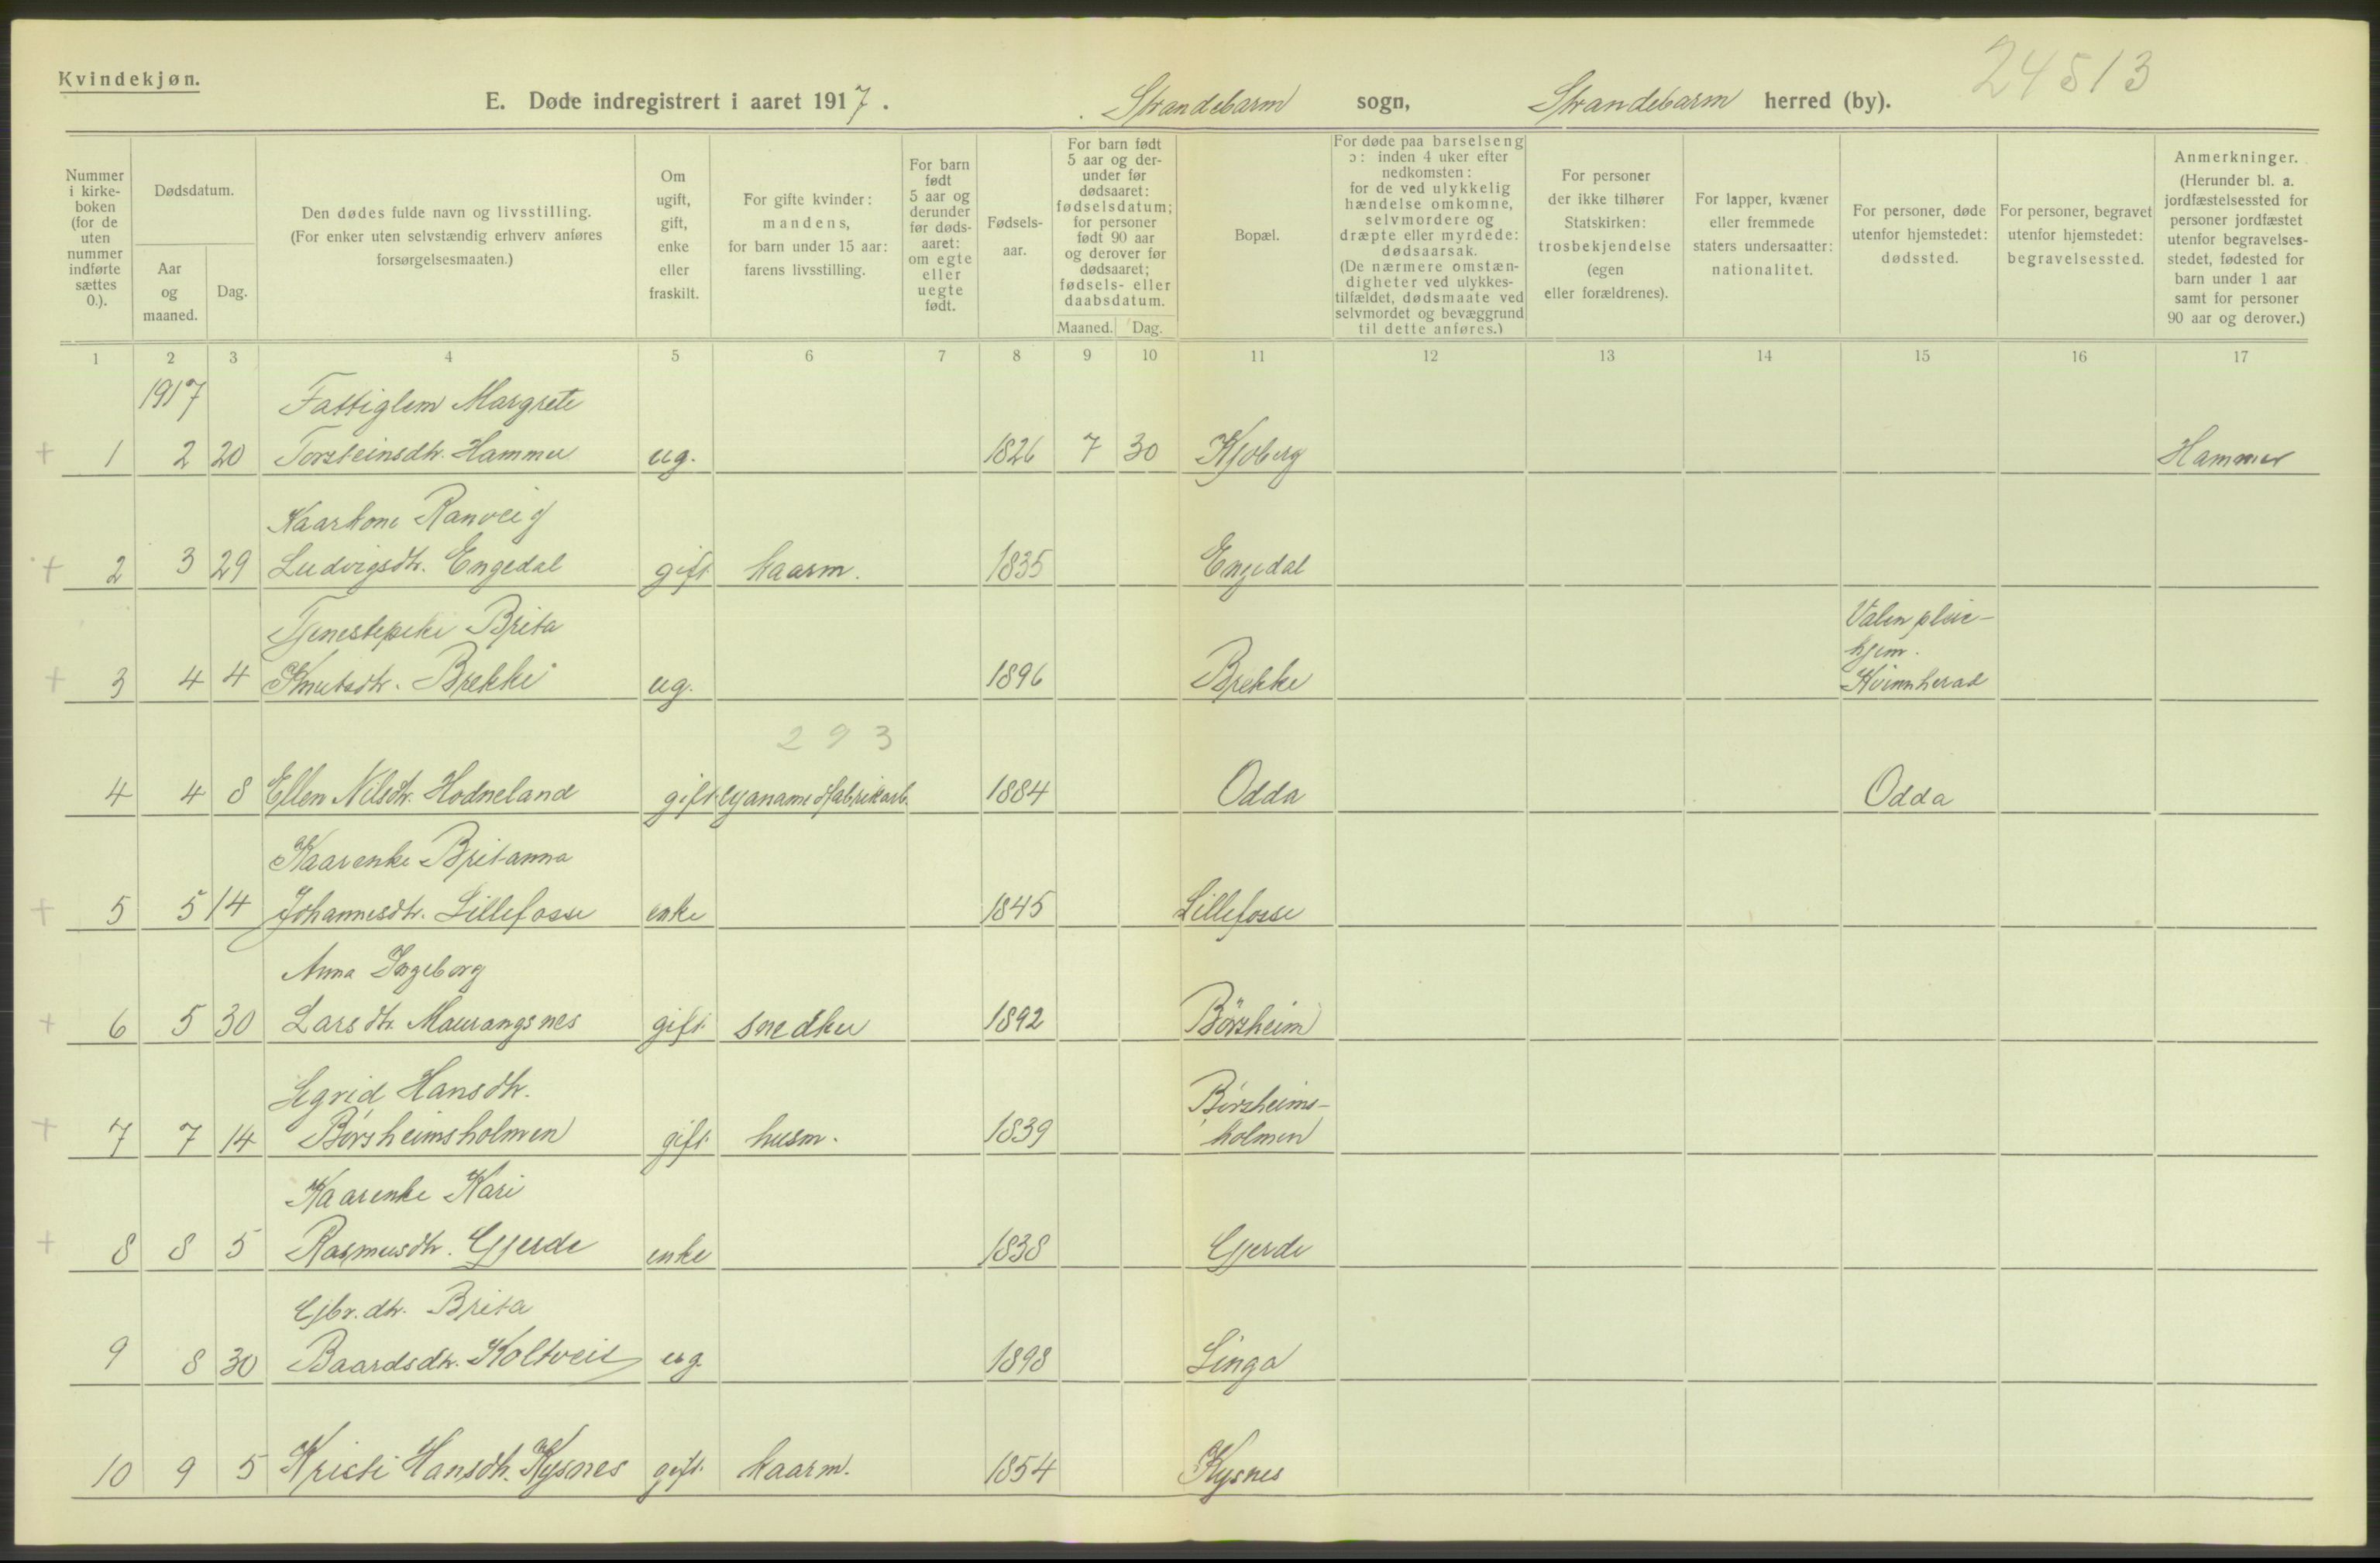 Kvindekjøn.
24513
E. Døde indregistrert i aaret 1917. Strandebarm sogn, Strandebarm herred (by).
Nummer i kirke-boken (for de uten nummer indførte sættes 0.).
Dødsdatum.
Aar og maaned.
Dag.
Den dødes fulde navn og livsstilling.
(For enker uten selvstændig erhverv anføres forsørgelsesmaaten.)
Om ugift, gift, enke eller fraskilt.
For gifte kvinder: mandens, for barn under 15 aar: farens livsstilling.
For barn født 5 aar og derunder før døds-aaret: om egte eller uegte født.
Fødsels-aar.
For barn født 5 aar og der-under før dødsaaret: fødselsdatum; for personer født 90 aar og derover før dødsaaret; fødsels- eller daabsdatum.
Maaned. Dag.
Bopæl.
For døde paa barselseng ɔ: inden 4 uker efter nedkomsten: for de ved ulykkelig hændelse omkomne, selvmordere og dræpte eller myrdede: dødsaarsak. (De nærmere omstæn-digheter ved ulykkes-tilfældet, dødsmaate ved selvmordet og bevæggrund til dette anføres.)
For personer der ikke tilhører Statskirken: trosbekjendelse (egen eller forældrenes).
For lapper, kvæner eller fremmede staters undersaatter: nationalitet.
For personer, døde utenfor hjemstedet: dødssted.
For personer, begravet utenfor hjemstedet: begravelsessted.
Anmerkninger. (Herunder bl. a. jordfæstelsessted for personer jordfæstet utenfor begravelses-stedet, fødested for barn under 1 aar samt for personer 90 aar og derover.)
1 2 3 4 5 6 7 8 9 10 11 12 13 14 15 16 17
1917 Fattiglem Margrete
+ 1 2 20 Torsteinsdtr. Hammer ug. 1826 7 30 Hammer
Kaarkone Ranveig
+ 2 3 29 Ludvigsdtr. Engedal gift kaarm. 1835 Engedal
Tjenestepike Brita Valen pleie-
hjem.
+ 3 4 4 Knutsdtr. Brekke ug. 1896 Brekke Kvinnherad
293
4 4 8 Ellen Nilsdtr. Hodneland gift cyanamidfabrikarb. 1884 Odda Odda
Kaarenke Britanna
+ 5 5 14 Johannesdtr. Lillefosse enke 1845 Lillefosse
Anna Ingeborg
+ 6 5 30 Larsdtr. Maurangsnes gift snedker 1892 Börsheim
Sigrid Hansdtr. Börsheims-
+ 7 7 14 Börsheimsholmen gift husm. 1839 holmen
Kaarenke Kari
+ 8 8 5 Rasmusdtr. Gjerde enke 1838 Gjerde
Gbr.dtr. Brita
9 8 30 Baardsdtr. Koltveit ug. 1898 Linga
10 9 5 Kristi Hansdtr. Kysnes gift kaarm. 1854 Kysnes